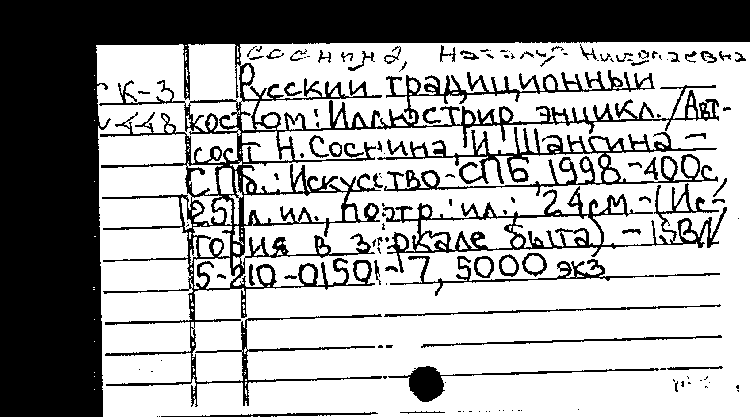 Соснина, Наталья Николаевна
К-3 Русский традиционный
448 костюм: Иллюстрир. энцикл. / Авт-
сост Н. Соснина, И. Шангина –
СПб.: Искусство-СПБ, 1998.-400с,
[25] л. ил., портр.: ил.; 24см.-(Ис-
тория в зеркале быта). – ISBN
5-210-01501-7, 5000 экз.